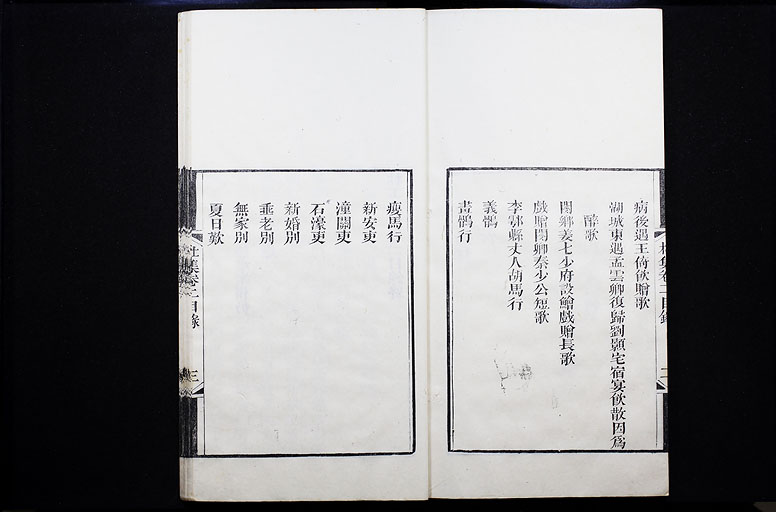 病後過王倚飲贈歌
湖城東遇孟雲卿復歸劉顥宅宿宴飲散因爲
醉歌
閿鄉姜七少府設鱠戲贈長歌
戲贈閿鄉秦少公短歌
李鄠縣丈人胡馬行
義鶻
畫鶻行
杜集卷二目錄
二
瘦馬行
新安吏
潼關吏
石濠吏
新婚別
垂老別
無家別
夏日歎
杜集卷二目錄
三